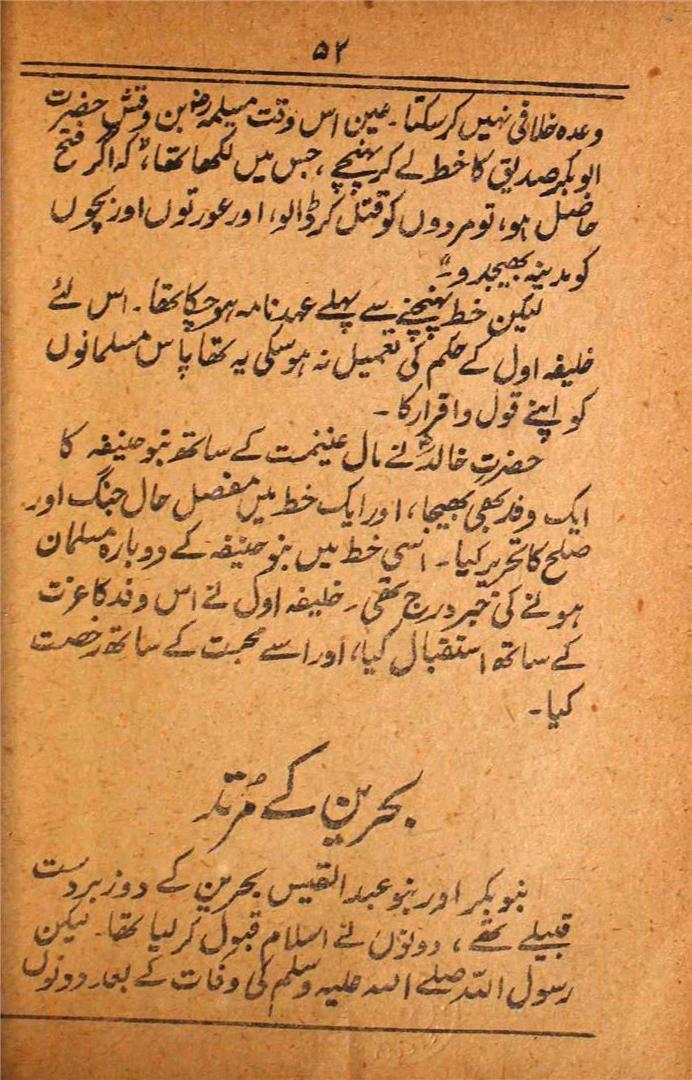 ۵۳
وعدہ خلافی نہیں کرسکتا۔ عین اس وقت مسیلمہ رضؓ بن وقش حضرت
ابوبکر صدیق کا خط لے کر پہنچے، جس میں لکھا تھا، "کہ اگر فتح
حاصل ہو، تو مردوں کو قتل کر ڈالو، اور عورتوں اور بچوں
کو مدینہ بھیجدو۔"
لیکن خط پہنچنے سے پہلے عہد نامہ ہوچکا تھا۔ اس لئے
خلیفہ اول کے حکم کی تعمیل نہ ہوسکی یہ تھا پاس مسلمانوں
کو اپنے قول و اقرار کا۔
حضرت خالدؓ نے مال غنیمت کے ساتھ بنو حنیفہ کا
ایک وفد بھی بھیجا، اور ایک خط میں مفصل حال جنگ اور
صلح کا تحریر کیا۔ اسی خط میں بنو حنیفہ کے دوبارہ مسلمان
ہونے کی خبر درج تھی۔ خلیفہ اول نے اس وفد کا عزت
کے ساتھ استقبال کیا، اور اسے محبت کے ساتھ رخصت
کیا۔
بحرین کے مُرتد
بنو بکر اور بنو عبد القیس بحرین کے دو زبردست
قبیلے تھے، دونوں نے اسلام قبول کر لیا تھا۔ لیکن
رسول اللہ صلے اللہ علیہ وسلم کی وفات کے بعد دونوں